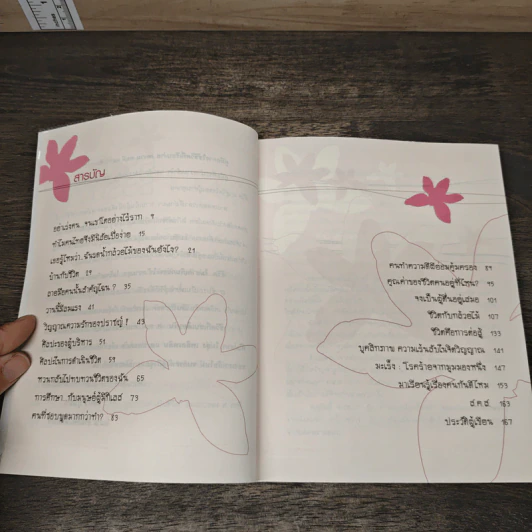 สารบัญ
อย่าเร่งคน...จนเขาโตอย่างไร้ราก 9
ทำไมคนไทยจึงมีนิสัยเบื่อง่าย 15
เธอรู้ไหมว่า..ฉันรดน้ำกล้วยไม้ของฉันยังไง? 21
บ้านกับชีวิต 29
สายสัมพันธ์สำคัญไฉน? 35
วานนี้มีลมแรง 41
วิญญาณความรักของปราชญ์! 43
ศิลปะของผู้บริหาร 51
ศิลปะในการดำเนินชีวิต 59
หวนกลับไปทบทวนชีวิตของฉัน 65
การศึกษา..กับมนุษย์ผู้มีกิเลส 73
คนที่ชอบพูดมากกว่าทำ? 83
คนทำความดีย่อมคุ้มครอง 89
คุณค่าของชีวิตคนอยู่ที่ไหน? 95
จงเป็นผู้ตื่นอยู่เสมอ 101
ชีวิตกับกล้วยไม้ 107
ชีวิตคือการต่อสู้ 133
บุคลิกภาพ ความเร้นลับในจิตวิญญาณ 141
มะเร็ง : โรคร้ายจากมุมมองหนึ่ง 147
มาเรียนรู้เรื่องคนกันดีไหม 153
ส.ค.ส. 163
ประวัติผู้เขียน 167